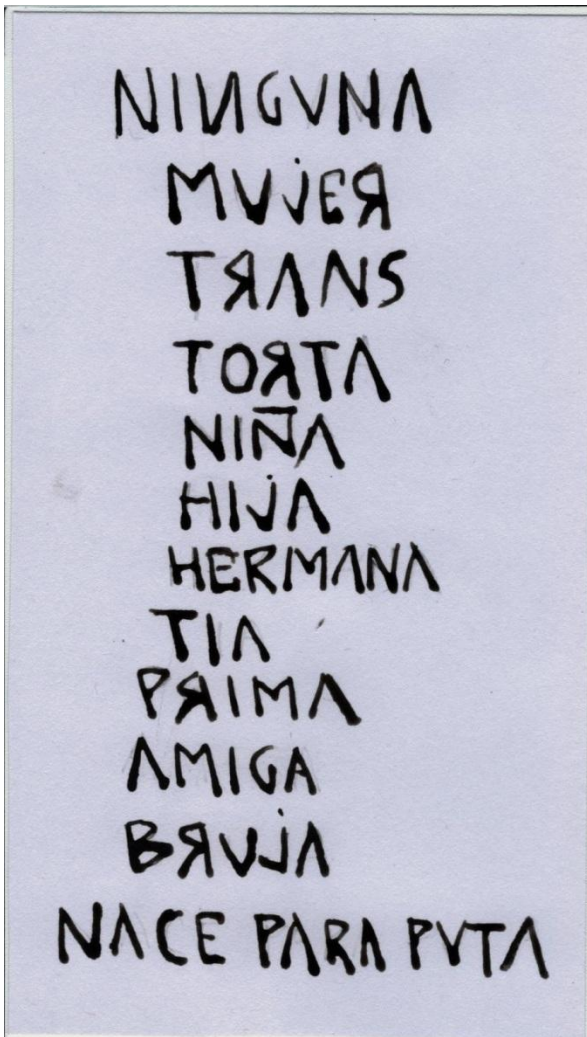 NINGUNA
MUJER
TRANS
TORTA
NIÑA
HIJA
HERMANA
TIA
PRIMA
AMIGA
BRUJA
NACE PARA PUTA